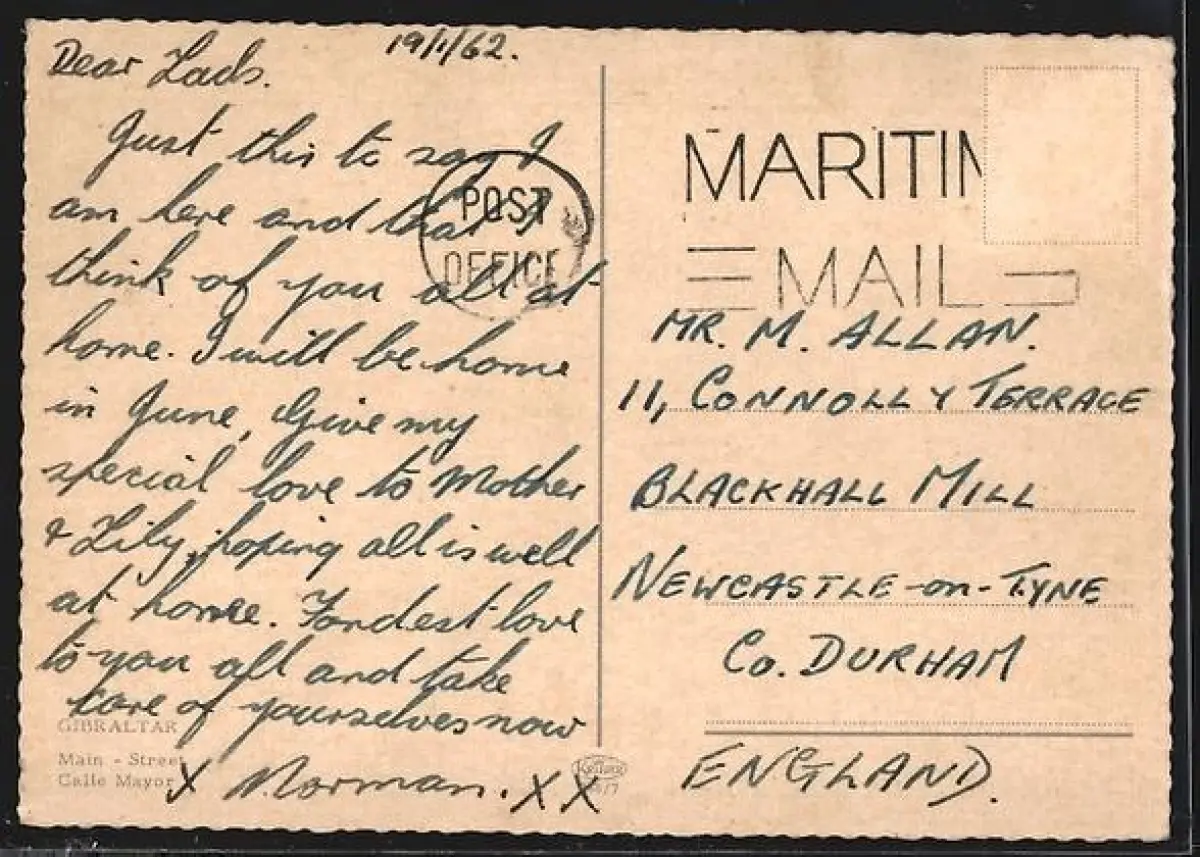 19/1/62.
Dear Lads.
Just this to say I
am here and that I
think of you all at
home. I will be home
in June, Give my
special love to Mother
& Lily, hoping all is well
at home. Fondest love
to you all and take
care of yourselves now
X Norman. X X
GIBRALTAR
Main - Street
Calle Mayor
POST
OFFICE
MARITIM
MAIL
MR. M. ALLAN.
11, CONNOLLY TERRACE
BLACKHALL MILL
NEWCASTLE-on-TYNE
Co. DURHAM
ENGLAND.